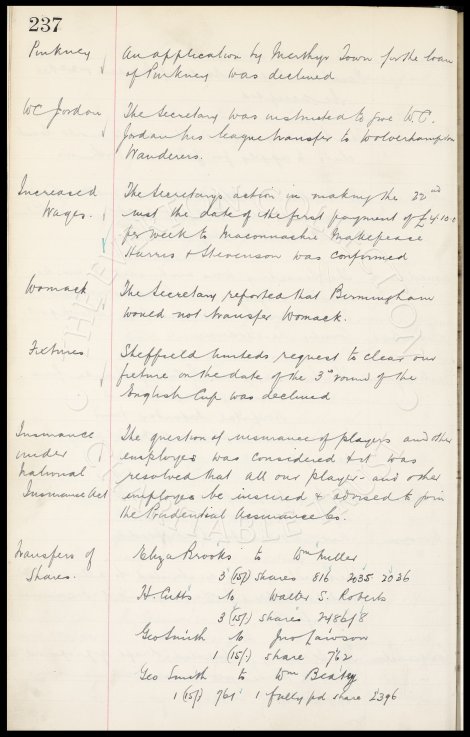 237
Pinkney An application by Merthyr Town for the loan
of Pinkney was declined
W C Jordan The Secretary was instructed to give W. C.
Jordan his league transfer to Wolverhampton
Wanderers.
Increased The Secretarys action in making the 22nd
Wages. inst the date of the first payment of £4.10.0
per week to Maconnachie Makepeace
Harris & Stevenson was confirmed
Womack The Secretary reported that Birmingham
would not transfer Womack.
Fixtures Sheffield Uniteds request to clear our
fixture on the date of the 3rd round of the
English Cup was declined
Insurance The question of insurance of players and other
under employes was considered & it was
National resolved that all our players and other
Insurance Act employes be insured & advised to join
the Prudential Assurance Co.
Transfers of Eliza Brooks to Wm Miller
Shares. 3 (15/) shares 816 2035 2036
H. Cubbs to Walter S. Roberts
3 (15/-) shares 2486/8
Geo Smith to Jno Lawson
1 (15/-) share 762
Geo Smith to Wm Beaty
1 (15/) 761 1 fully pd share 2396